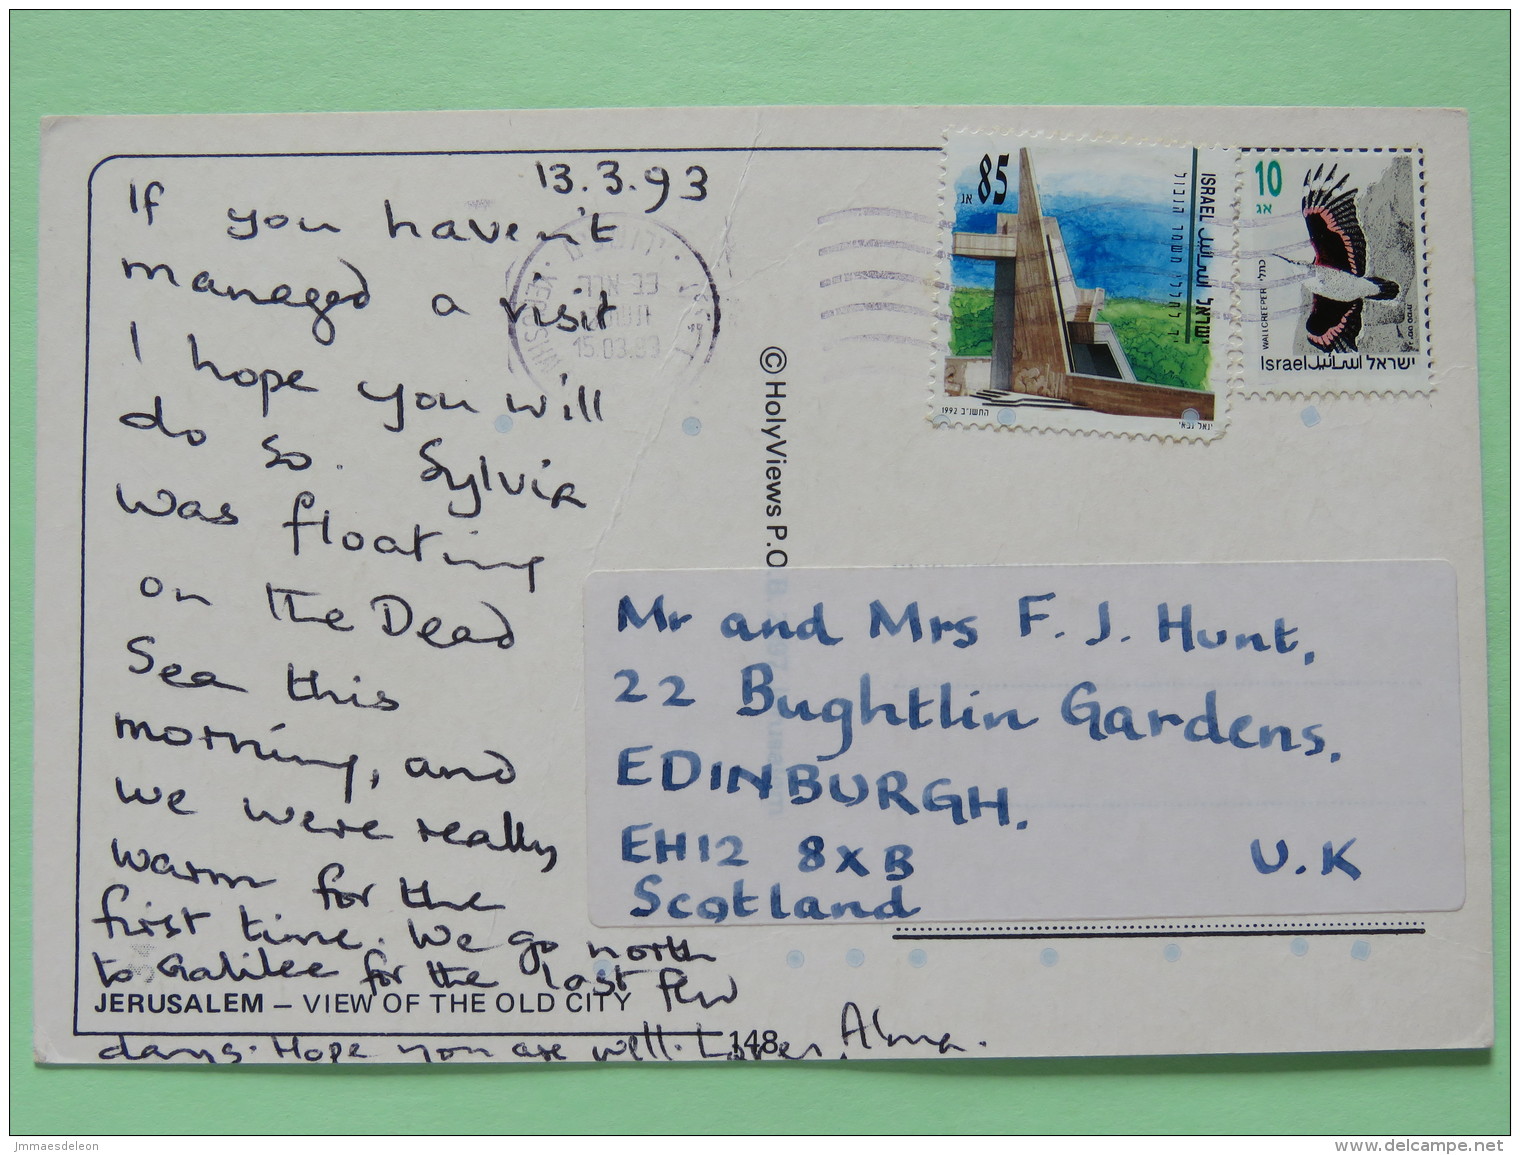 13.3.93
If you haven't
managed a visit
I hope you will
do so. Sylvia
was floating
on the Dead
Sea this
morning, and
we were really
warm for the
first time. We go north
to Galilee for the last few
days. Hope you are well.
Alma.
JERUSALEM – VIEW OF THE OLD CITY
148
© HolyViews P.O
15.03.93
85
אג
ISRAEL
ישראל
יד לחללי משמר הגבול
1992 התשנ"ב
10
אג
WALLCREEPER
כתלי
Israel اسرائيل ישראל
Mr and Mrs F. J. Hunt,
22 Bughtlin Gardens,
EDINBURGH.
EH12 8XB U.K
Scotland
jmmaesdeleon
www.delcampe.net